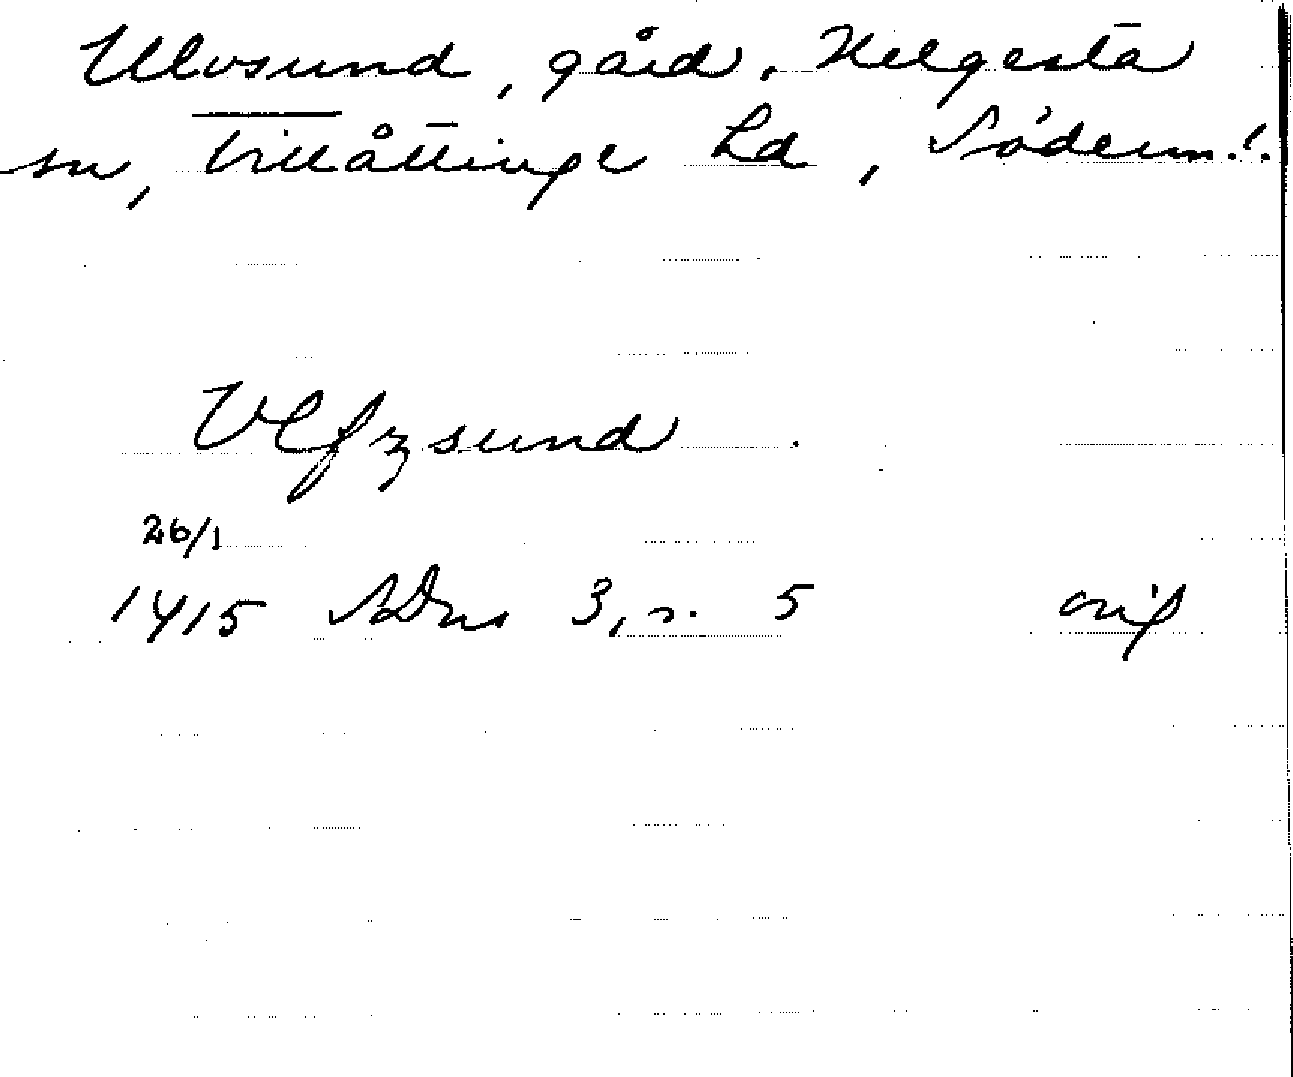 Ulvsund, gård, Helgesta
sn, Villåttinge hd, Söderm.l.
Vlfzsund.
26/1
1415 SDns 3, s. 5 orig